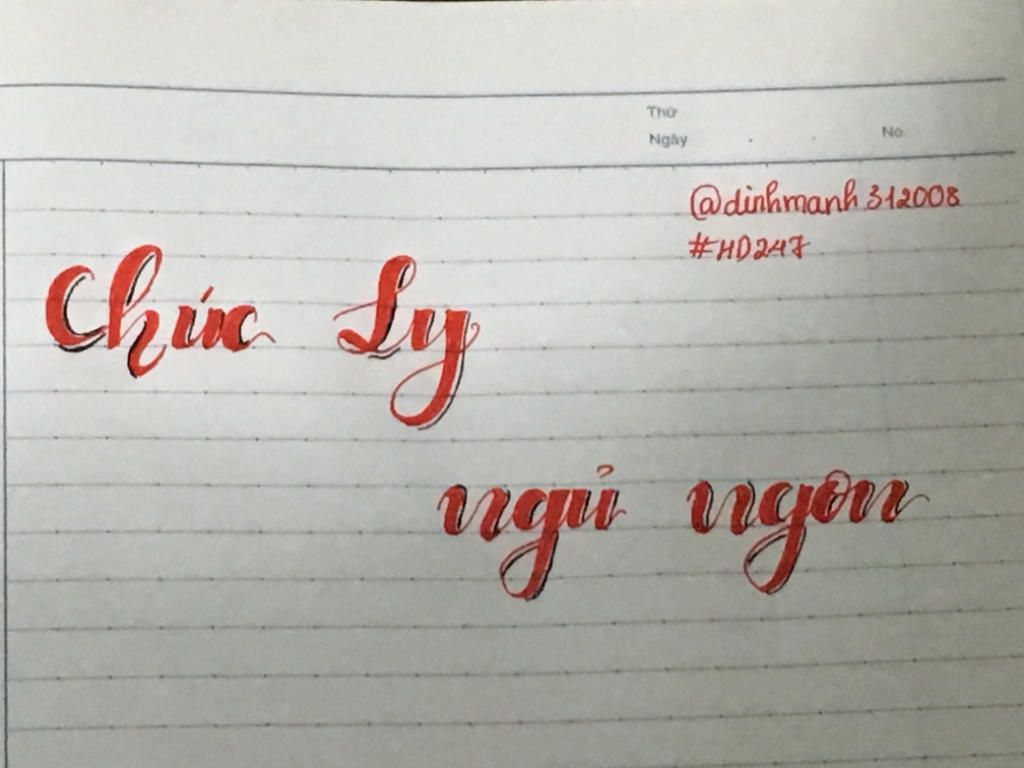 Thứ
Ngày . . No
@dinhmanh312008
#HD247
Chúc Ly
ngủ ngon